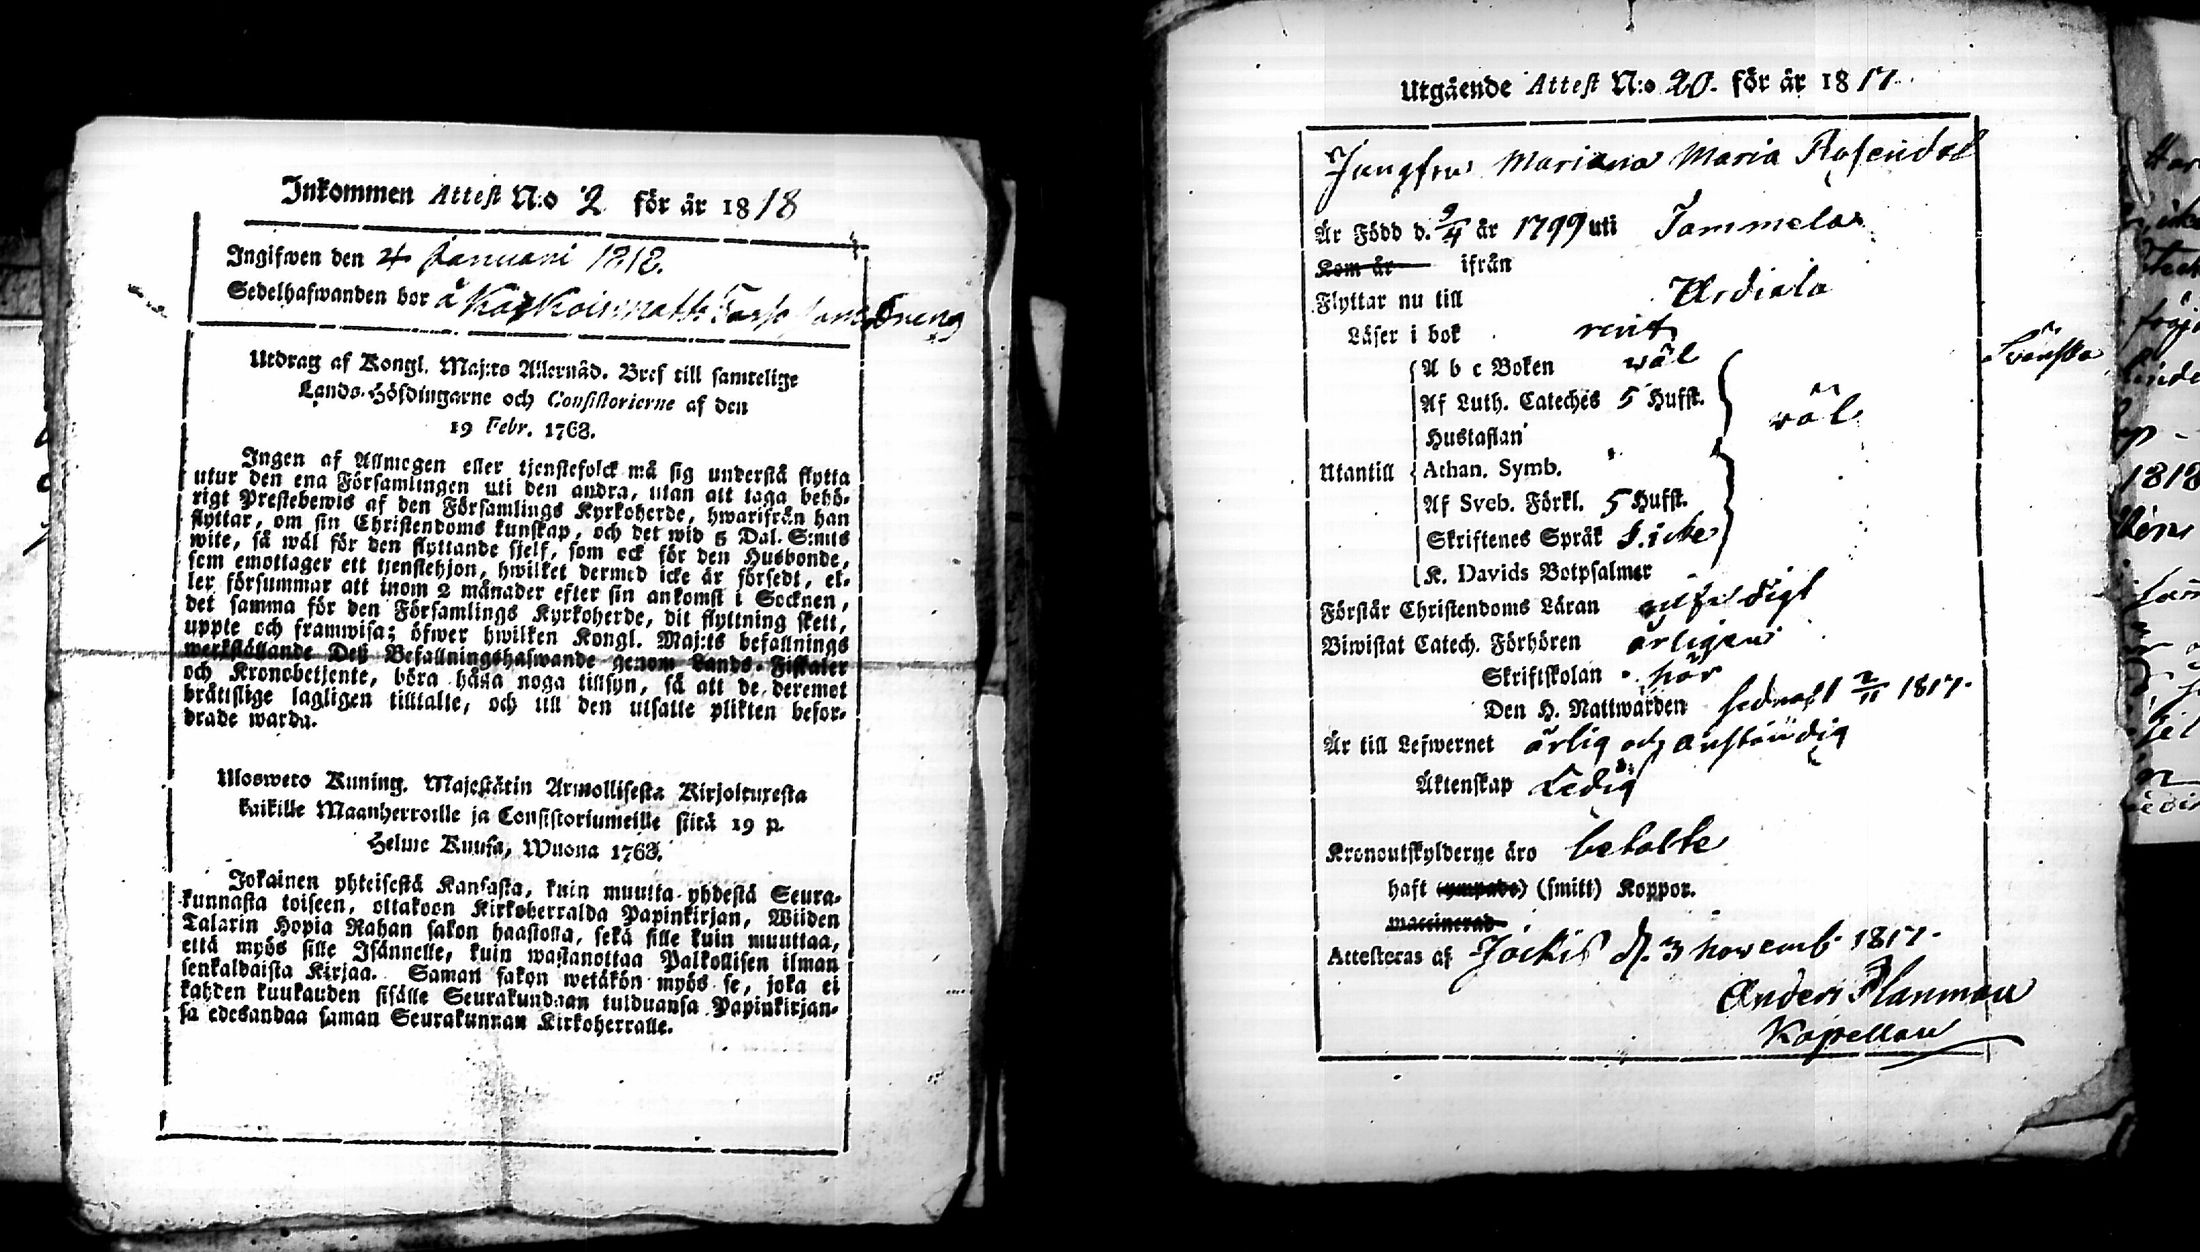 Inkommen Attest N:o 2 för år 1818
Ingifwen den 4 Januari 1818.
Sedelhafwanden bor å
Utdrag af Kongl. Maj:ts Allernåd. Bref till samtelige
Lands-Höfdingarne och Consistorierne af den
19 Febr. 1763.
Ingen af Allmogen eller tjenstefolck må sig understå flytta
utur den ena Församlingen uti den andra, utan att taga behö-
rigt Prestebewis af den Församlings Kyrkoherde, hwarifrån han
flyttar, om sin Christendoms kunskap, och det wid 5 Dal. S:mts
wite, så wäl för den flyttande sjelf, som ock för den Husbonde,
som emottager ett tjenstehjon, hwilket dermed icke är försedt, el-
ler försummar att inom 2 månader efter sin ankomst i Socknen,
det samma för den Församlings Kyrkoherde, dit flyttning skett,
uppte och framwisa; öfwer hwilken Kongl. Maj:ts befallnings
werkställande Deß Befallningshafwande genom Lands-Fiskaler
och Kronobetjente, böra hålla noga tillsyn, så att de deremot
brättslige lagligen tilltalle, och till den utsatte plikten befor-
drade warda.
Ulosweto Kuning. Majestätin Armollisesta Kirjoituxesta
kaikille Maanherroille ja Consistoriumeille siitä 19 p.
Helme Kuusa, Wuona 1763.
Jokainen yhteisestä Kansasta, kuin muutta yhdestä Seura-
kunnasta toiseen, ottakoon Kirkoherralda Papinkirjan, Wiiden
Talarin Hopia Rahan sakon haastolla, sekä sille kuin muuttaa,
että myös sille Isännelle, kuin wastanottaa Palkollisen ilman
senkaldaista Kirjaa. Saman sakon wetäkön myös se, joka ei
kahden kuukauden sisälle Seurakundaan tulduansa Papinkirjan-
sa edesandaa saman Seurakunnan Kirkoherralle.
Utgående Attest N:o 20. för år 1817
Jungfru Mariana Maria Rosendal
Är Född d. 9/4 år 1799 uti Tammela
Kom år ifrån
Flyttar nu till Urdiala
Läser i bok rent Svenska
A b c Boken wäl
Af Luth. Cateches 5 Hufst.
Hustaflan wäl
Utantill Athan. Symb.
Af Sveb. Förkl. 5 Hufst.
Skriftenes Språk
K. Davids Botpsalmer
Förstår Christendoms Läran
Biwistat Catech. Förhören årligen
Skriftskolan
Den H. Nattwarden sednast 2/11 1817.
Är till Lefwernet ärlig och anständig
Äktenskap Ledig
Kronoutskylderne äro betalte
haft (ympade) (smitt) Koppor.
waccinerad
Attesteras af Jockis d. 3 novemb 1817.
Anders Planman
Kapellan